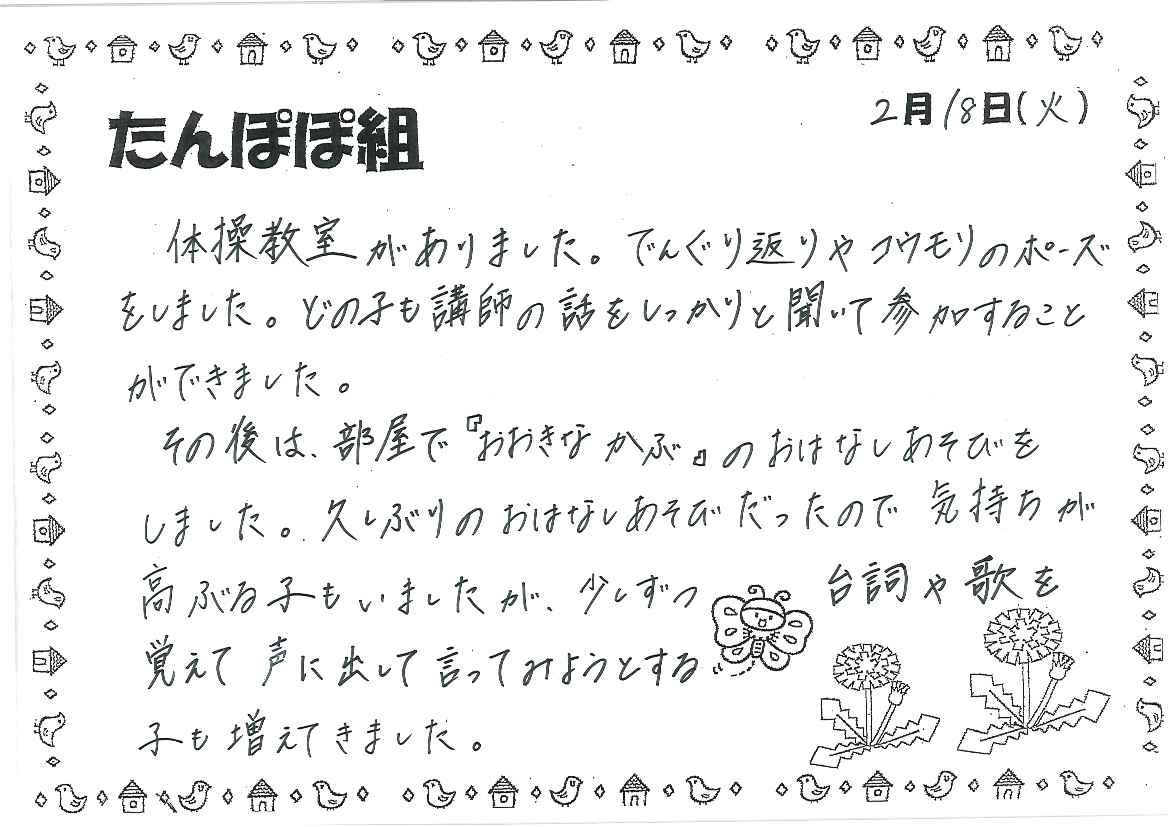 2月18日(火)
たんぽぽ組
体操教室がありました。でんぐり返りやコウモリのポーズ
をしました。どの子も講師の話をしっかりと聞いて参加すること
ができました。
その後は、部屋で『おおきなかぶ』のおはなしあそびを
しました。久しぶりのおはなしあそびだったので気持ちが
高ぶる子もいましたが、少しずつ 台詞や歌を
覚えて声に出して言ってみようとする
子も増えてきました。